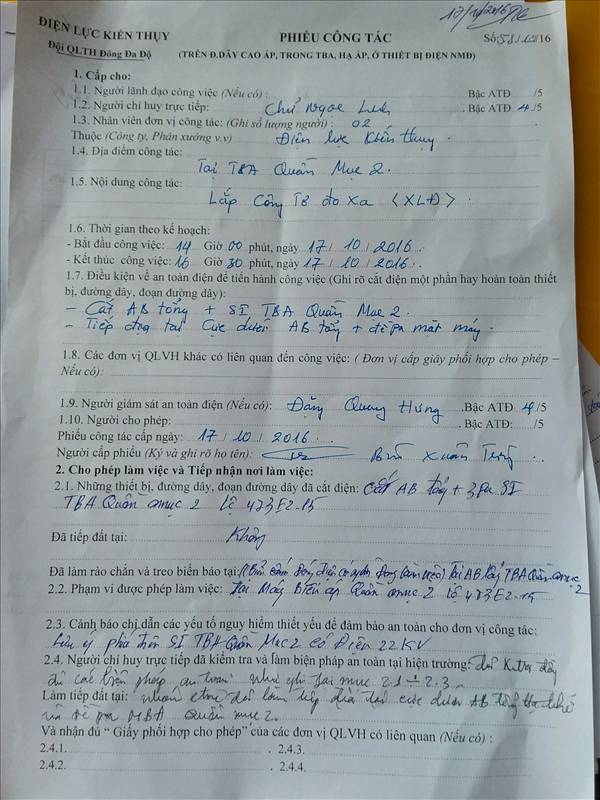 17/10/2016
ĐIỆN LỰC KIẾN THỤY PHIẾU CÔNG TÁC Số: 58/10/2016
Đội QLTH Đông Đa Độ (TRÊN Đ.DÂY CAO ÁP, TRONG TBA, HẠ ÁP, Ở THIẾT BỊ ĐIỆN NMĐ)
1. Cấp cho:
1.1. Người lãnh đạo công việc (Nếu có) : Bậc ATĐ /5
1.2. Người chỉ huy trực tiếp: Chử Ngọc Linh Bậc ATĐ 4 /5
1.3. Nhân viên đơn vị công tác: (Ghi số lượng người) : 02
Thuộc (Công ty, Phân xưởng v.v) Điện lực Kiến Thụy
1.4. Địa điểm công tác:
Tại TBA Quần Mục 2.
1.5. Nội dung công tác:
Lắp Công TB đo xa <XLĐ>
1.6. Thời gian theo kế hoạch:
- Bắt đầu công việc: 14 Giờ 00 phút, ngày 17 / 10 / 2016
- Kết thúc công việc: 16 Giờ 30 phút, ngày 17 / 10 / 2016
1.7. Điều kiện về an toàn điện để tiến hành công việc (Ghi rõ cắt điện một phần hay hoàn toàn thiết
bị, đường dây, đoạn đường dây):
- Cắt AB tổng + SI TBA Quần Mục 2.
- Tiếp địa tại Cực dưới AB tổng + đề pa mát máy.
1.8. Các đơn vị QLVH khác có liên quan đến công việc: ( Đơn vị cấp giấy phối hợp cho phép –
Nếu có):
1.9. Người giám sát an toàn điện (Nếu có): Đặng Quang Hưng Bậc ATĐ 4 /5
1.10. Người cho phép: Bậc ATĐ: /5
Phiếu công tác cấp ngày: 17 / 10 / 2016
Người cấp phiếu (Ký và ghi rõ họ tên): Bùi Xuân
2. Cho phép làm việc và Tiếp nhận nơi làm việc:
2.1. Những thiết bị, đường dây, đoạn đường dây đã cắt điện: Cắt AB tổng + 3 pha SI
TBA Quần mục 2 lộ 473E2.15
Đã tiếp đất tại: Không
Đã làm rào chắn và treo biển báo tại: cấm đóng điện có người đang làm việc) Tại AB tổng TBA Quần mục 2
2.2. Phạm vi được phép làm việc: Tại Máy Biến áp Quần mục 2 lộ 473E2.15
2.3. Cảnh báo chỉ dẫn các yếu tố nguy hiểm thiết yếu để đảm bảo an toàn cho đơn vị công tác:
Lưu ý phía trên SI TBA Quần Mục 2 có Điện 22 KV
2.4. Người chỉ huy trực tiếp đã kiểm tra và làm biện pháp an toàn tại hiện trường: đã K.tra đầy
đủ các biện pháp an toàn như ghi tại mục 2.1 ÷ 2.3
Làm tiếp đất tại: đã làm tiếp địa tại cực dưới AB tổng Hạ thế
và đề pa MBA Quần mục 2.
Và nhận đủ “ Giấy phối hợp cho phép” của các đơn vị QLVH có liên quan (Nếu có) :
2.4.1. 2.4.3.
2.4.2. 2.4.4.